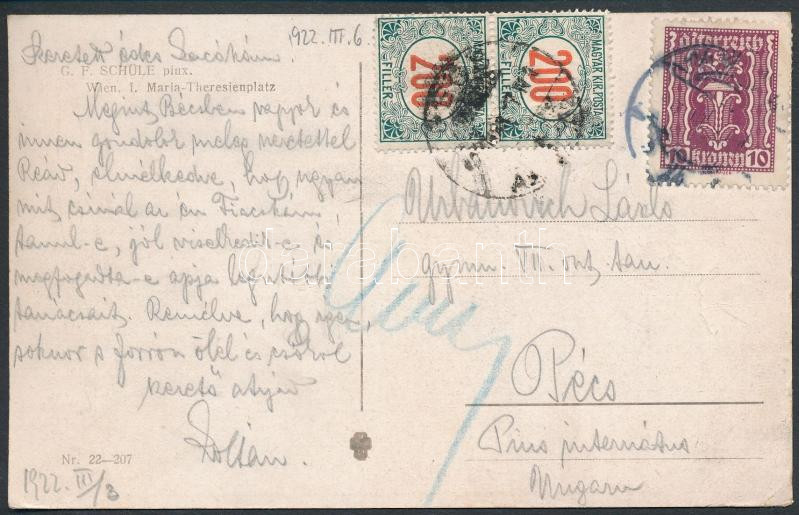 1922. III. 6.
Szeretett édes Lacókám
G. F. SCHÜLE pinx.
Wien, I. Maria-Theresienplatz
Megint Bécsben vagyok és
innen gondolok meleg szeretettel
Reád, elmélkedve, hogy ugyan
mit csinál az én Fiacskám
tanul-e, jól viselkedik-e és
megfogadta-e apja legutóbbi
tanácsait. Remélve, hogy igen,
sokszor s forrón ölel és csókol
szerető atyád
Zoltán.
Nr. 22—207
1922. III/3
MAGYAR KIR. POSTA
200
FILLÉR
MAGYAR KIR. POSTA
200
FILLÉR
Österreich
10 Kronen 10
Urbanovich László
gymn. VII. oszt. tan.
Pécs
Pius internátus
Ungarn
darabanth